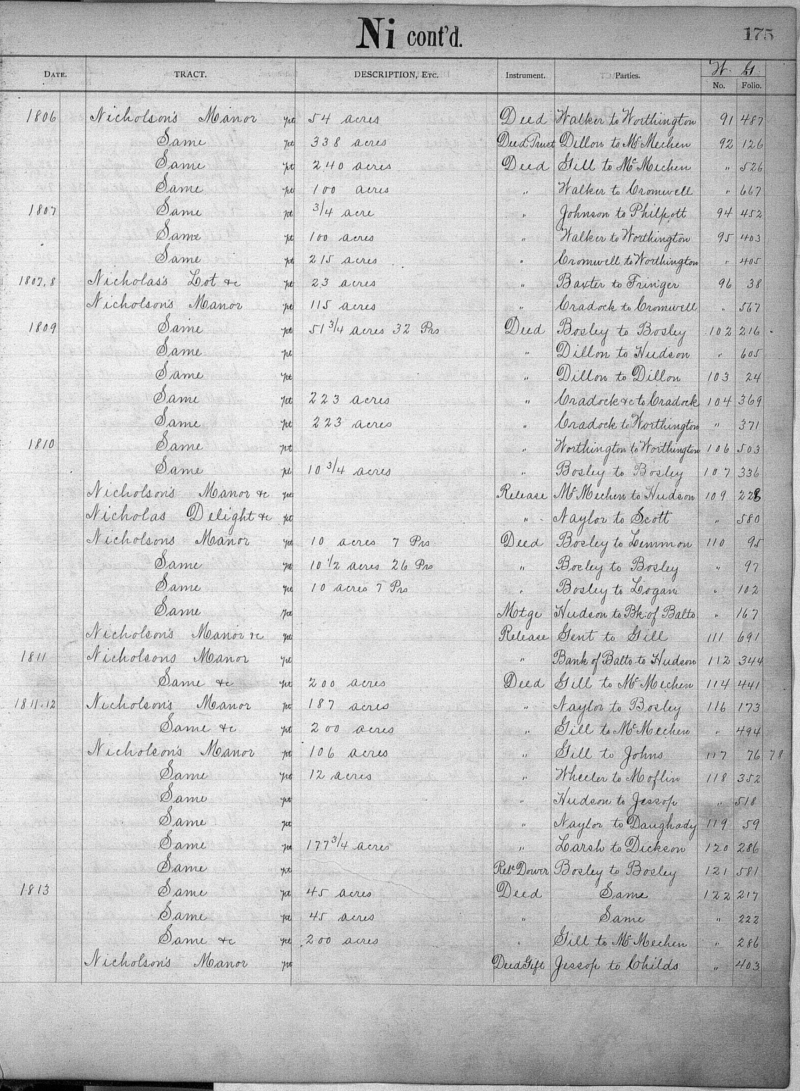 Ni cont'd. 175
DATE. TRACT. DESCRIPTION, ETC. Instrument. Parties. W. G.
No. Folio.
1806 Nicholson's Manor pt 54 acres Deed Walker to Worthington 91 487
Same pt 338 acres Deed Trust Dillon to McMechen 92 126
Same pt 240 acres Deed Gill to McMechen " 526
Same pt 100 acres " Walker to Cromwell " 667
1807 Same pt 3/4 acre " Johnson to Philpott 94 452
Same pt 100 acres " Walker to Worthington 95 403
Same pt 215 acres " Cromwell to Worthington " 405
1807,8 Nicholas's Lot &c pt 23 acres " Baxter to Fringer 96 38
Nicholson's Manor pt 115 acres " Cradock to Cromwell " 567
1809 Same pt 51 3/4 acres 32 Prs Deed Bosley to Bosley 102 216
Same pt " Dillon to Hudson " 605
Same pt " Dillon to Dillon 103 24
Same pt 223 acres " Cradock &c to Cradock 104 369
Same pt 223 acres " Cradock to Worthington " 371
1810 Same pt " Worthington to Worthington 106 503
Same pt 10 3/4 acres " Bosley to Bosley 107 336
Nicholson's Manor &c pt Release McMechen to Hudson 109 228
Nicholas Delight &c pt " Naylor to Scott " 580
Nicholsons Manor pt 10 acres 7 Prs Deed Bosley to Lemmon 110 95
Same pt 10 1/2 acres 26 Prs " Bosley to Bosley " 97
Same pt 10 acres 7 Prs " Bosley to Logan " 102
Same pt Mtge Hudson to Bk. of Balto " 167
Nicholson's Manor &c pt Release Gent to Gill 111 691
1811 Nicholsons Manor pt " Bank of Balto to Hudson 112 344
Same &c pt 200 acres Deed Gill to McMechen 114 441
1811.12 Nicholson's Manor pt 187 acres " Naylor to Bosley 116 173
Same &c pt 200 acres " Gill to McMechen " 494
Nicholson's Manor pt 106 acres " Gill to Johns 117 76 78
Same pt 12 acres " Wheeler to Moflin 118 352
Same pt " Hudson to Jessop " 518
Same pt " Naylor to Daughady 119 59
Same pt 177 3/4 acres " Larsh to Dickson 120 286
Same pt Rel. Dower Bosley to Bosley 121 581
1813 Same pt 45 acres Deed Same 122 217
Same pt 45 acres " Same " 222
Same &c pt 200 acres " Gill to McMechen " 286
Nicholson's Manor pt Deed Gift Jessop to Childs " 403